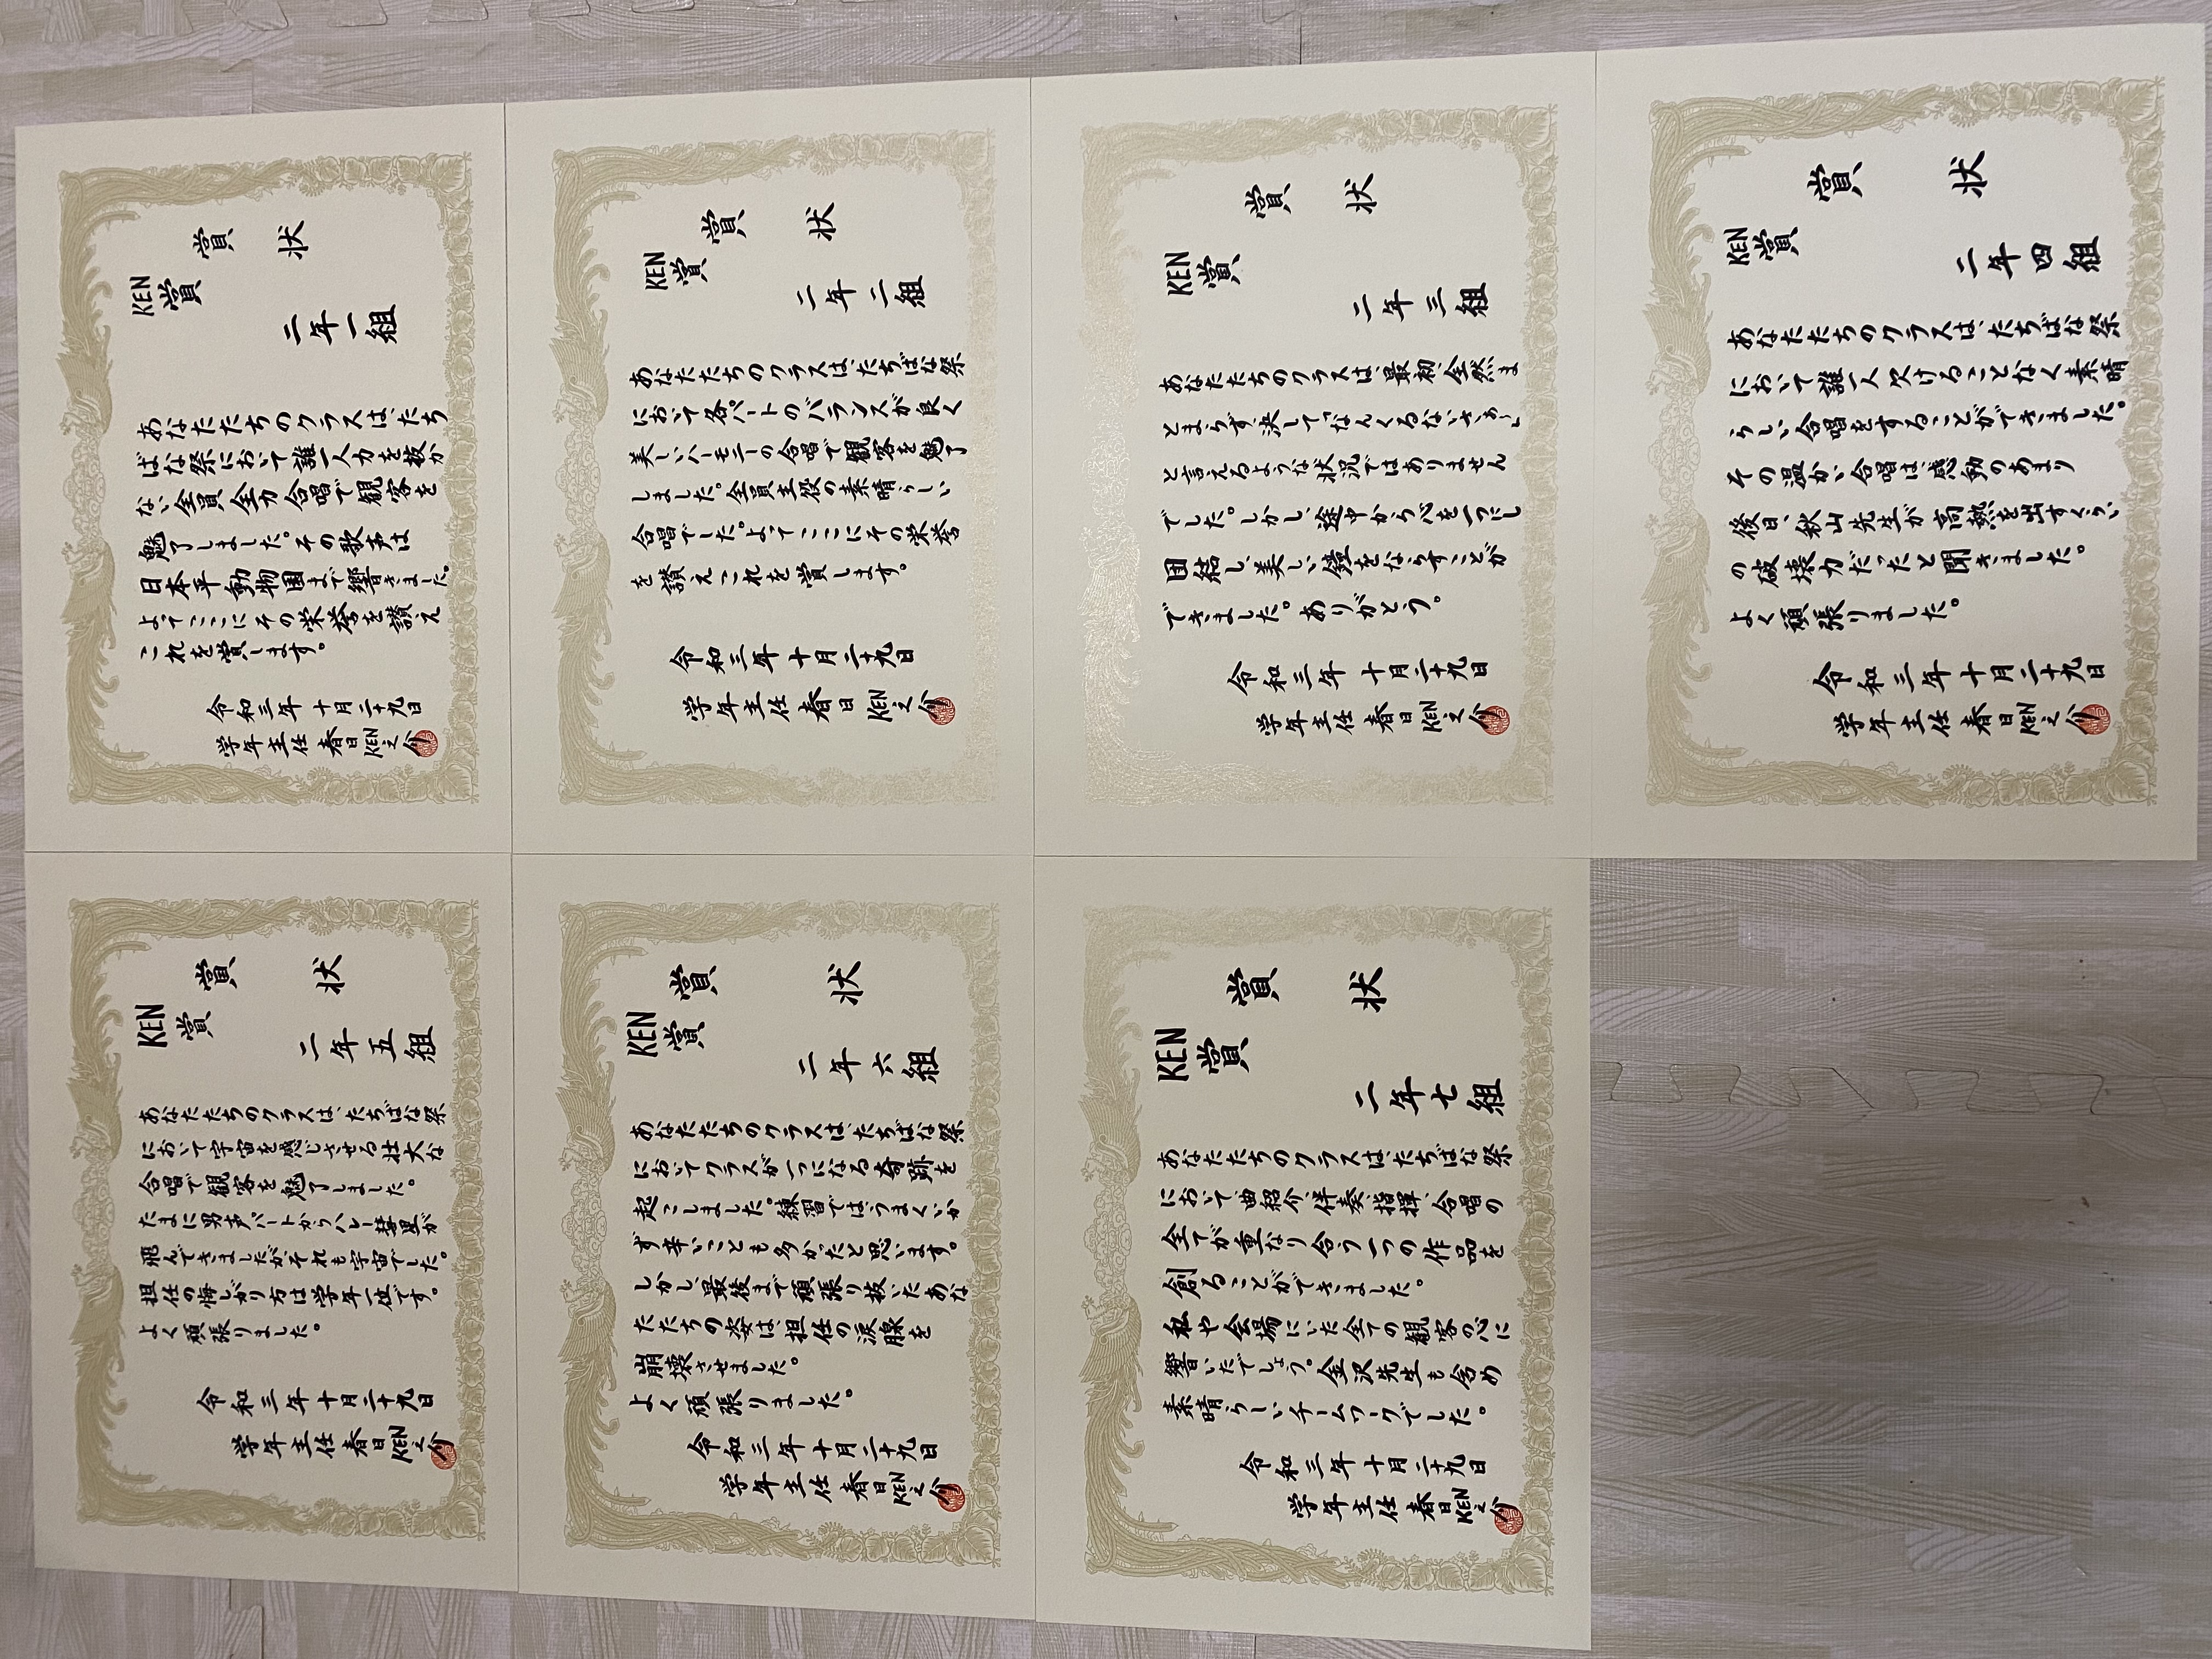 賞状
KEN賞
二年一組
あなたたちのクラスは、たち
ばな祭において誰一人力を抜か
ない全員全力合唱で観客を
魅了しました。その歌声は
日本平動物園まで響きました。
よってここにその栄誉を讃え
これを賞します。
令和三年十月二十九日
学年主任 春日KEN之介
賞状
KEN賞
二年二組
あなたたちのクラスは、たちばな祭
において各パートのバランスが良く
美しいハーモニーの合唱で観客を魅了
しました。全員主役の素晴らしい
合唱でした。よってここにその栄誉
を讃えこれを賞します。
令和三年十月二十九日
学年主任 春日KEN之介
賞状
KEN賞
二年三組
あなたたちのクラスは、最初、全然ま
とまらず、決して「なんくるないさぁ」
と言えるような状況ではありません
でした。しかし、途中から心を一つにし
団結し、美しい鐘をならすことが
できました。ありがとう。
令和三年十月二十九日
学年主任 春日KEN之介
賞状
KEN賞
二年四組
あなたたちのクラスは、たちばな祭
において誰一人欠けることなく素晴
らしい合唱をすることができました。
その温かい合唱は、感動のあまり
後日、秋山先生が高熱を出すくらい
の破壊力だったと聞きました。
よく頑張りました。
令和三年十月二十九日
学年主任 春日KEN之介
賞状
KEN賞
二年五組
あなたたちのクラスは、たちばな祭
において宇宙を感じさせる壮大な
合唱で観客を魅了しました。
たまに男声パートからハレー彗星が
飛んできましたが、それも宇宙でした。
担任の悔しがり方は学年一位です。
よく頑張りました。
令和三年十月二十九日
学年主任 春日KEN之介
賞状
KEN賞
二年六組
あなたたちのクラスは、たちばな祭
においてクラスが一つになる奇跡を
起こしました。練習では、うまくいか
ず辛いことも多かったと思います。
しかし、最後まで頑張り抜いたあな
たたちの姿は、担任の涙腺を
崩壊させました。
よく頑張りました。
令和三年十月二十九日
学年主任 春日KEN之介
賞状
KEN賞
二年七組
あなたたちのクラスは、たちばな祭
において、曲紹介、伴奏、指揮、合唱の
全てが重なり合う一つの作品を
創ることができました。
私や会場にいた全ての観客の心に
響いたでしょう。金沢先生も含め
素晴らしいチームワークでした。
令和三年十月二十九日
学年主任 春日KEN之介